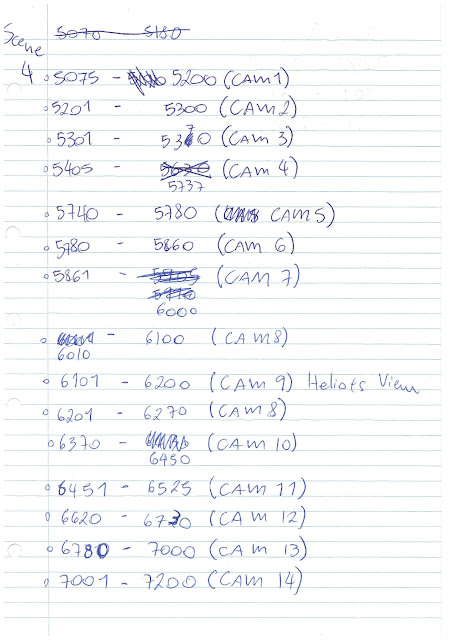 Scene 4
5070 - 5180
5075 - 5200 (CAM 1)
5201 - 5300 (CAM 2)
5301 - 5370 (CAM 3)
5405 - 5630 (CAM 4)
5737
5740 - 5780 (CAM 5)
5780 - 5860 (CAM 6)
5861 - 5905 (CAM 7)
5910
6000
- 6100 (CAM 8)
6010
6101 - 6200 (CAM 9) Helio's View
6201 - 6270 (CAM 8)
6370 - (CAM 10)
6450
6451 - 6525 (CAM 11)
6620 - 6730 (CAM 12)
6780 - 7000 (CAM 13)
7001 - 7200 (CAM 14)